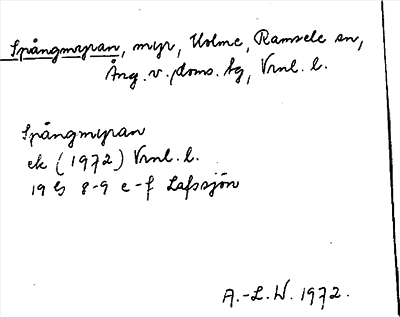 Spångmyran, myr, Holme, Ramsele sn,
Ång. v. doms. hg, Vrnl. l.
Spångmyran
ek (1972) Vrnl. l.
19 G 8-9 e-f Lafssjön
A.-L. W. 1972.